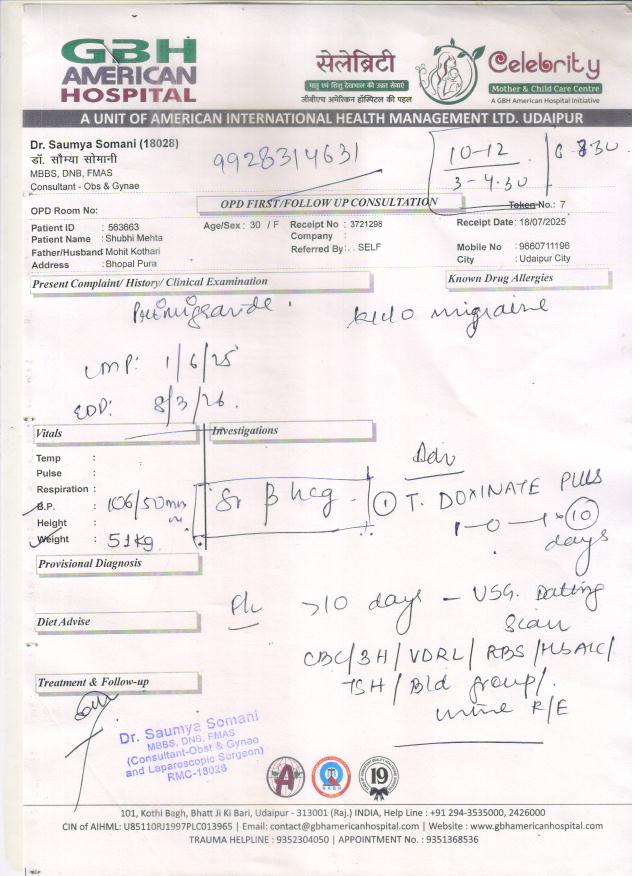 GBH
AMERICAN
HOSPITAL
सेलेब्रिटी
मातृ एवं शिशु देखभाल की उन्नत सेवाएं
जीबीएच अमेरिकन हॉस्पिटल की पहल
Celebrity
Mother & Child Care Centre
A GBH American Hospital Initiative
A UNIT OF AMERICAN INTERNATIONAL HEALTH MANAGEMENT LTD. UDAIPUR
Dr. Saumya Somani (18028)
डॉ. सौम्या सोमानी
MBBS, DNB, FMAS
Consultant - Obs & Gynae
9928314631
10-12
3-4.30
OPD FIRST/FOLLOW UP CONSULTATION
OPD Room No:
Token No.: 7
Patient ID : 563663 Age/Sex : 30 / F Receipt No : 3721298 Receipt Date: 18/07/2025
Patient Name : Shubhi Mehta Company :
Father/Husband Mohit Kothari Referred By: . SELF Mobile No :9660711196
Address : Bhopal Pura City : Udaipur City
Present Complaint/ History/ Clinical Examination Known Drug Allergies
Primigravida. k/c/o migraine
LMP: 1/6/25
EDD: 8/3/26.
Vitals Investigations
Adv
Temp :
Pulse :
Respiration :
B.P. : 106/50mm
Height :
Weight : 51kg
Sr β hcg
① T. DOXINATE PLUS
1-0-1 x 10
days
Provisional Diagnosis
>10 days - USG. Dating
Scan
Diet Advise
CBC/3H/VDRL/RBS/HBA1C/
TSH/Bld group/.
urine R/E
Treatment & Follow-up
Dr. Saumya Somani
MBBS, DNB, FMAS
(Consultant-Obst & Gynae
and Laparoscopic Surgeon)
RMC-18028
19
101, Kothi Bagh, Bhatt Ji Ki Bari, Udaipur - 313001 (Raj.) INDIA, Help Line : +91 294-3535000, 2426000
CIN of AIHML: U85110RJ1997PLC013965 | Email: contact@gbhamericanhospital.com | Website : www.gbhamericanhospital.com
TRAUMA HELPLINE : 9352304050 | APPOINTMENT No. : 9351368536